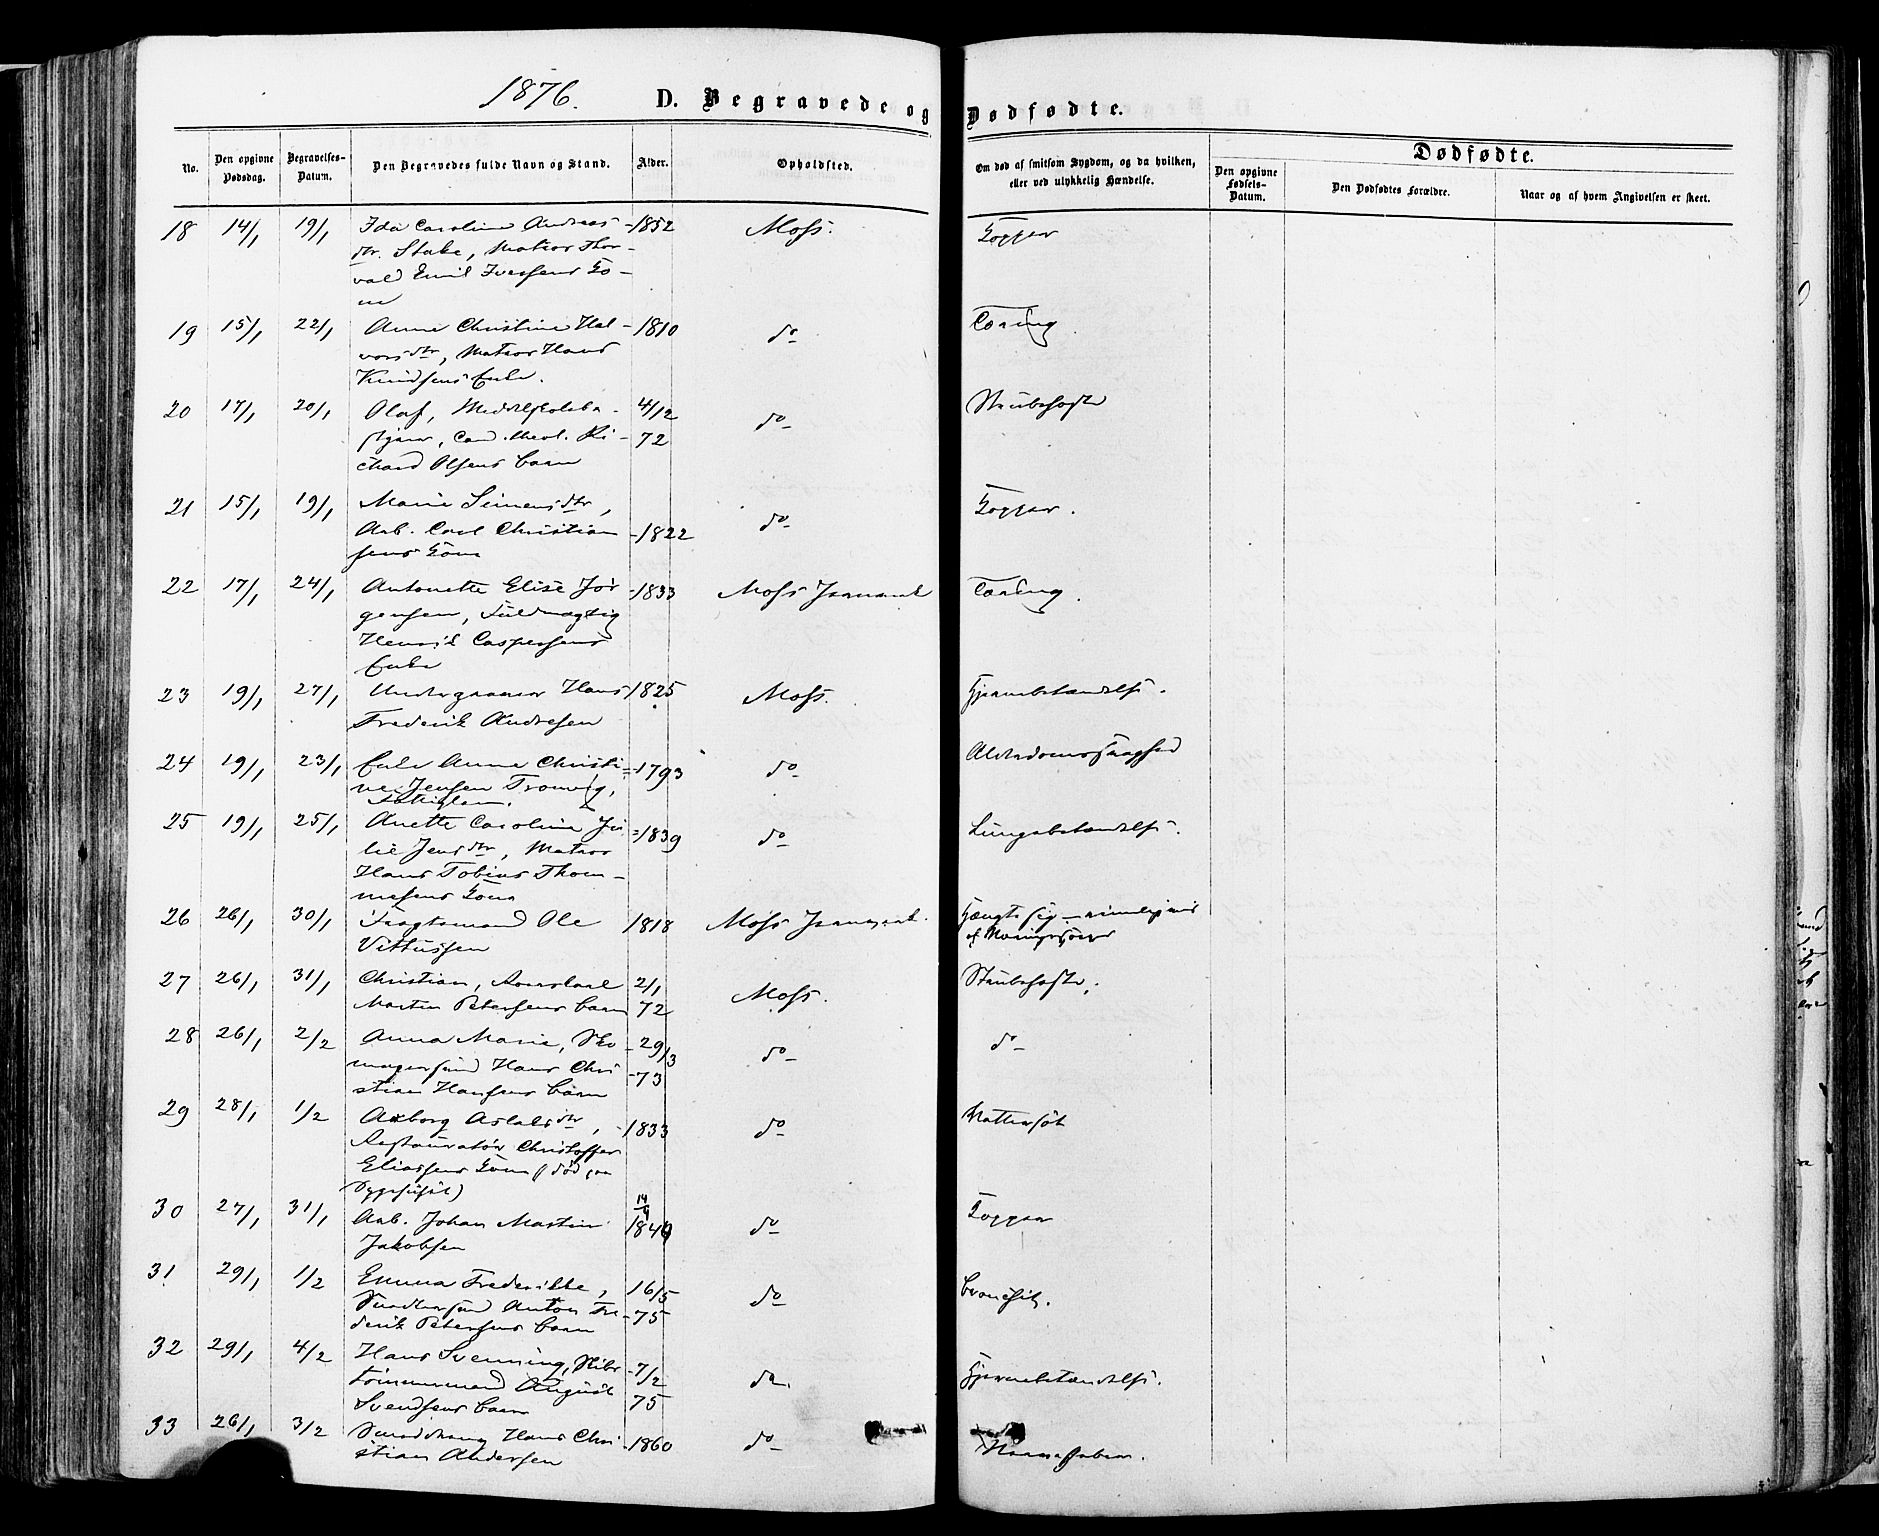 1876.
D. Begravede og Dødfødte.
No.
Den opgivne Dødsdag.
Begravelses-Datum.
Den Begravedes fulde Navn og Stand.
Alder.
Opholdsted.
Om død af smitsom Sygdom, og da hvilken, eller ved ulykkelig Hændelse.
Dødfødte.
Den opgivne Fødsels-Datum.
Den Dødfødtes Forældre.
Naar og af hvem Angivelsen er skeet.
18 14/1 19/1 Ida Caroline Andreas- 1852 Moss.
dtr. Stake, Matros Thor-
vald Emil Iversens Ko-
ne
19 15/1 22/1 Anne Christine Hal- 1810 do Tæring.
vorsdtr, Matros Hans
Knudsens Enke.
20 17/1 20/1 Olaf, Middelskolebe- 4/12 do Strubehoste
styrer, Cand. theol. Ri- 72
chard Olsens Barn
21 15/1 19/1 Marie Simensdtr,
Arb. Carl Christian- 1822 do
sens Kone
22 17/1 24/1 Antonette Elise Jør- 1833 Moss Tæring.
gensen, Fuldmægtig
Henrik Caspersens
Enke
23 19/1 27/1 Hans 1825 Moss. Hjernebetændelse.
Frederik Andresen
24 19/1 23/1 Enke Anne Christi- 1793 do Alderdomssvaghed
ne Jensen Tronvig,
Fattiglem.
25 19/1 25/1 Anette Caroline Ju- 1839 do Lungebetændelse.
lie Jensdtr, Matros
Hans Tobias Thom-
mesens Kone
26 26/1 30/1 Fragtemand Ole 1818 Moss Hængte sig – rimeligvis
Vittussen af Næringssorger
27 26/1 31/1 Christian, 2/1 Moss. Strubehoste.
Martin Petersens Barn 72
28 26/1 2/2 Anna Marie, Sko- 29/3 do do
magersvend Hans Chri- 73
stian Hansens Barn
29 28/1 1/2 Aasborg Aslaksdtr, 1833 do
Restauratør Christoffer
Eliassens Kone (død paa
Sygehuset)
30 27/1 31/1 Arb. Johan Martin 14/9 1849 do
Jakobsen
31 29/1 1/2 Emma Frederikke, 16/5 do Bronchit.
Snedkersvend Anton Fre- 75
derik Petersens Barn
32 29/1 4/2 Hans Svenning, Skibs- 7/2 do Hjernebetændelse.
tømmermand August 75
Svendsens Barn
33 26/1 3/2 Hans Chri- 1860 do Nervefeber.
stian Andersen